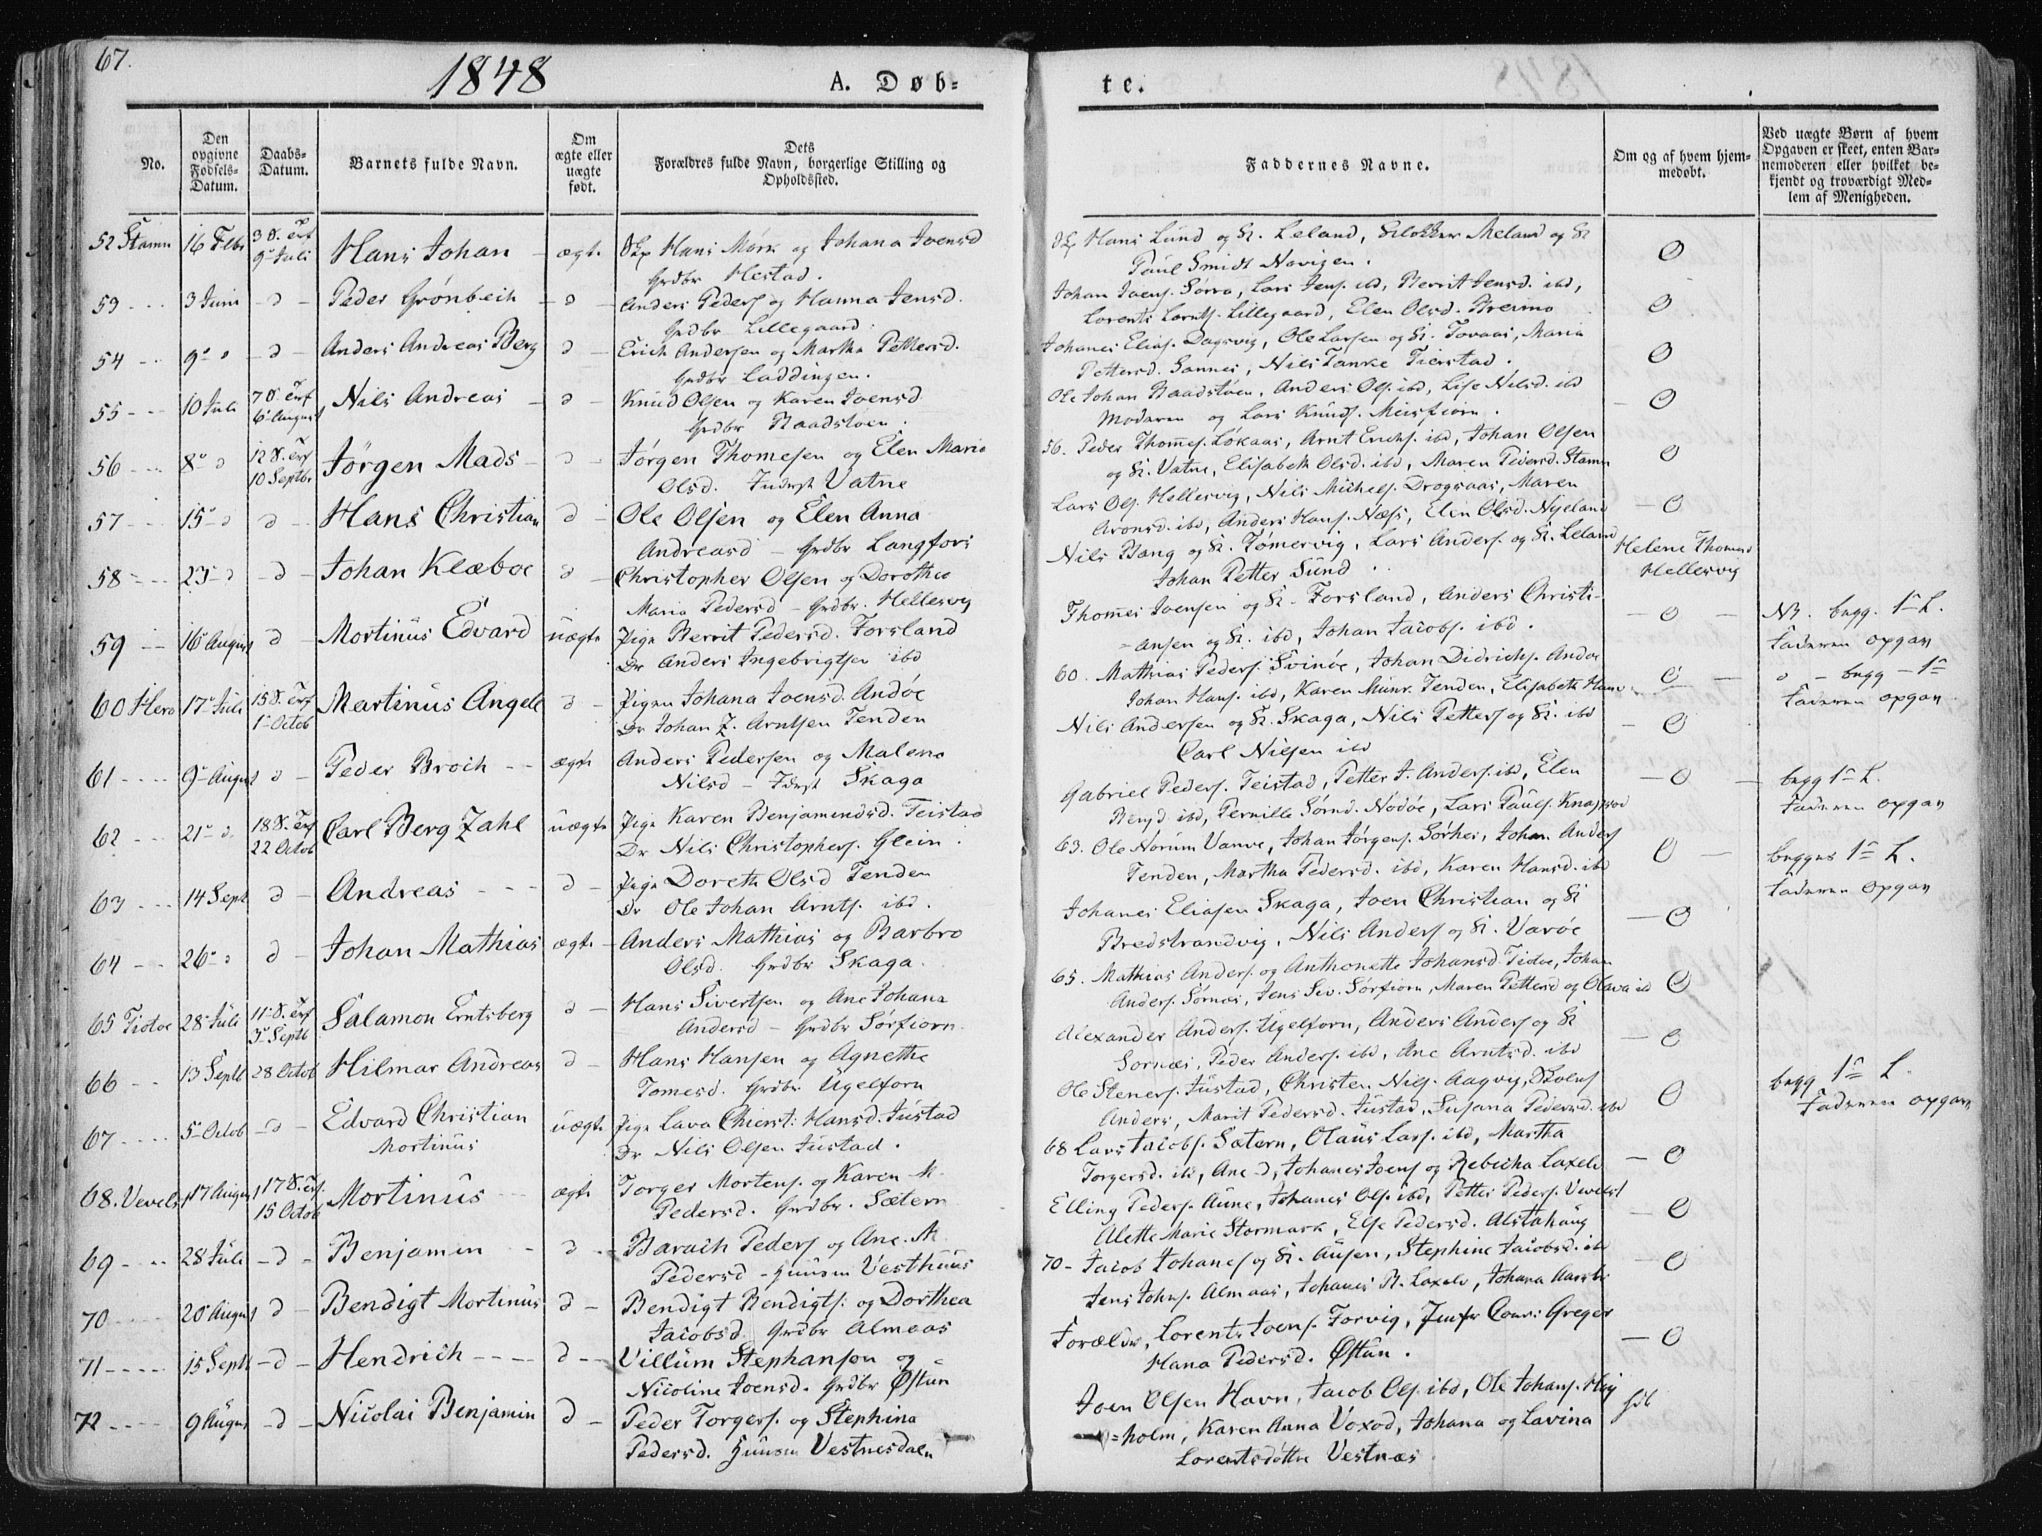 67.
1848
A. Døb-
te.
No.
Den opgivne Fødsels-Datum.
Daabs-Datum.
Barnets fulde Navn.
Om ægte eller uægte født.
Dets Forældres fulde Navn, borgerlige Stilling og Opholdssted.
Faddernes Navne.
Om og af hvem hjem-medøbt.
Ved uægte Børn af hvem Opgaven er skeet, enten Bar-nemoderen eller hvilket be-kjendt og troværdigt Med-lem af Menigheden.
52 Stamn 16 Febr 9 Juli Hans Johan ægte Hans Mørk og Johana Joensd
Grdbr Hestad.
Hans Lund og Leland, Meland og
Paul Smidt
53 3 Juni d Peder Grønbech d Anders Peders og Hanna Jensd.
Grdbr Lillegaard.
Johan Joens. Sørra, Lars Jens. ibd, Berrit Jensd. ibd,
Lorents Lornts. Lillegaard, Elen Olsd.
54 9 d d Anders Andreas Berg d Erich Andersen og Martha Pettersd.
Grdbr Laddingen.
Johanes Elias. Dagsvig, Ole Larsen og Tovaas, Maria
Pettersd. Sannes, Nils Tanke Tierstad.
55 10 Juli 6 August Nils Andreas d Knud Olsen og Karen Joensd
Grdbr Raadstoen.
Ole Johan Raadstoen, Anders Ols. ibd, Lise Nilsd. ibd
Moderen og Lars Knuds. Meisfiorn.
56 8 d 10 Septbr Jørgen Mads d Jørgen Thomesen og Elen Maria
Olsd. Inderst Vatne
56. Peder Thomes. Løkaas, Arnt Erichs. ibd, Johan Olsen
og Vatne, Elisabeth Olsd. ibd, Maren Pedersd. Stamn
57 15 d d Hans Christian d Ole Olsen og Elen Anna
Andreasd Grdbr Langfors
Lars Ols. Hellesvig, Nils Michels. Drogsaas, Maren
Aronsd. ibd, Anders Hans. Næss, Elen Olsd. Nyeland
58 23 d d Johan Klæboe d Christopher Olsen og Dorothea
Maria Pedersd Grdbr. Hellesvig
Nils Bang og Tømervig, Lars Anders. og Leland
Johan Petter Sund.
Helene Thomesd
Hellesvig
59 16 August d Mortinus Edvard uægte Pige Berrit Pedersd. Forsland
Dr Anders Ingebrigtsen ibd
Thomes Joensen og Forsland, Anders Christi-
-ansen og ibd, Johan Jacobs. ibd.
NB. begg. 1ste L.
Faderen opgav
60 Herø 17 Juli 1 Octob Martinus Angell d Pigen Johana Joensd. Andøe
Dr Johan Z. Arntsen Tenden
60. Mathias Peders. Svinøe, Johan Didrichs. Andøe
Johan Hans. ibd, Karen Munk Tenden, Elisabeth Hans
begg 1ste
Faderen opgav
61 9 August d Peder Broch ægte Anders Pedersen og Malena
Nilsd Skaga
Nils Andersen og Skaga, Nils Petters og ibd
Carl Nilsen ibd
62 21 d 22 Octob Carl Berg Zahl uægte Pige Karen Benjamensd. Teistad
Dr Nils Christophers. Glein.
Gabriel Peders. Teistad, Petter J. Anders. ibd, Elen
ibd, Pernille Sørnd. Nodøe, Lars Pauls.
begg 1ste L.
Faderen opgav
63 14 Sept d Andreas d Pige Doreth Olsd Tenden
Dr Ole Johan Arnts. ibd.
63. Ole Norum Johan Jørgens. Johan Anders
Tenden, Martha Pedersd. ibd, Karen Hansd. ibd
begges 1ste L.
Faderen opgav
64 26 d d Johan Mathias ægte Anders Mathias og Barbro
Olsd. Grdbr Skaga.
Johanes Eliasen Skaga, Joen Christian og
Bredstrandvig, Nils Anders og Varøe
65 Tiøtøe 28 Juli 3 Septb Salamon Erntsberg d Hans Sivertsen og Ane Johana
Andersd Grdbr Sørfiorn.
65. Mathias Anders. og Anthonette Johansd. Johan
Anders. Sørnæs, Jens Siv. Sørfiorn, Maren Pettersd og Olava ibd
66 13 Septb 28 Octob Hilmar Andreas d Hans Hansen og Agnethe
Tomesd. Grdbr Ugelforn
Alexander Anders. Ugelforn, Anders Anders og
Sornæs, Peder Anders. ibd, Ane Arntsd. ibd
67 5 Octob d Edvard Christian
Mortinus uægte Pige Lava Chierst: Hansd. Justad
Dr Nils Olsen Justad.
Ole Steners. Justad, Christen Nils. Aagvig,
Anders, Marit Pedersd. Justad, Susana Pedersd. ibd
begg 1ste L.
Faderen opgav
68. Vevels 17 August 15 Octob Mortinus ægte Torger Mortens. og Karen M.
Pedersd. Grdbr. Sætern
68 Lars Jacobs. Sætern, Olaus Lars. ibd, Martha
Torgersd. ibd, Ane d, Johanes Joens og Rebecha Laxelv
69 28 Juli d Benjamin d Barach Peders og Ane M.
Pedersd Huusm Vesthuus
Elling Peders. Aune, Johanes Ols. ibd, Petter Peders. Vevelst
Alette Marie Stormark, Else Pedersd. Alstahaug
70 20 August d Bendigt Mortinus d Bendigt Bendigts. og Dorthea
Jacobsd. Grdbr Almaas
70 Jacob Johanes og Ausen, Stephine Jacobsd. ibd
Jens Johns. Almaas, Johanes B. Laxelv, Johana
71 15 Septb d Hendrich d Villum Stephanson og
Nicoline Joensd. Grdbr Østun
Forældr, Lorents Joens. Forvig, Greger
Hana Pedersd. Østun.
72 9 August d Nicolai Benjamin d Peder Torgers. og Stephina
Pedersd. Huusm Vestnesdaln
Joen Olsen Havn, Jacob Ols. ibd, Ole Johans. Høy
=holm, Karen Anna Voxod, Johana og Lavina
Lorentsdøttre Vestnæs